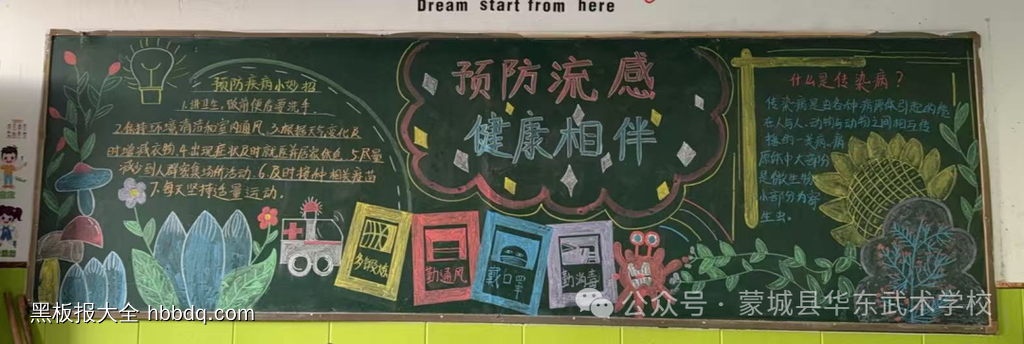 Dream start from here
预防疾病小妙招
1.讲卫生,饭前便后要洗手。
2.保持环境清洁和室内通风.3.根据天气变化及
时增减衣物.4.出现症状及时就医并居家休息.5.尽量
减少到人群密集场所活动.6.及时接种相关疫苗
7.每天坚持适量运动。
预防流感
健康相伴
多锻炼
勤通风
戴口罩
勤消毒
什么是传染病?
传染病是由各种病原体引起的能
在人与人、动物与动物之间相互传
播的一类病.病
原体中大部份
是微生物
小部分为寄
生虫。
黑板报大全 hbbdq.com
公众号·蒙城县华东武术学校